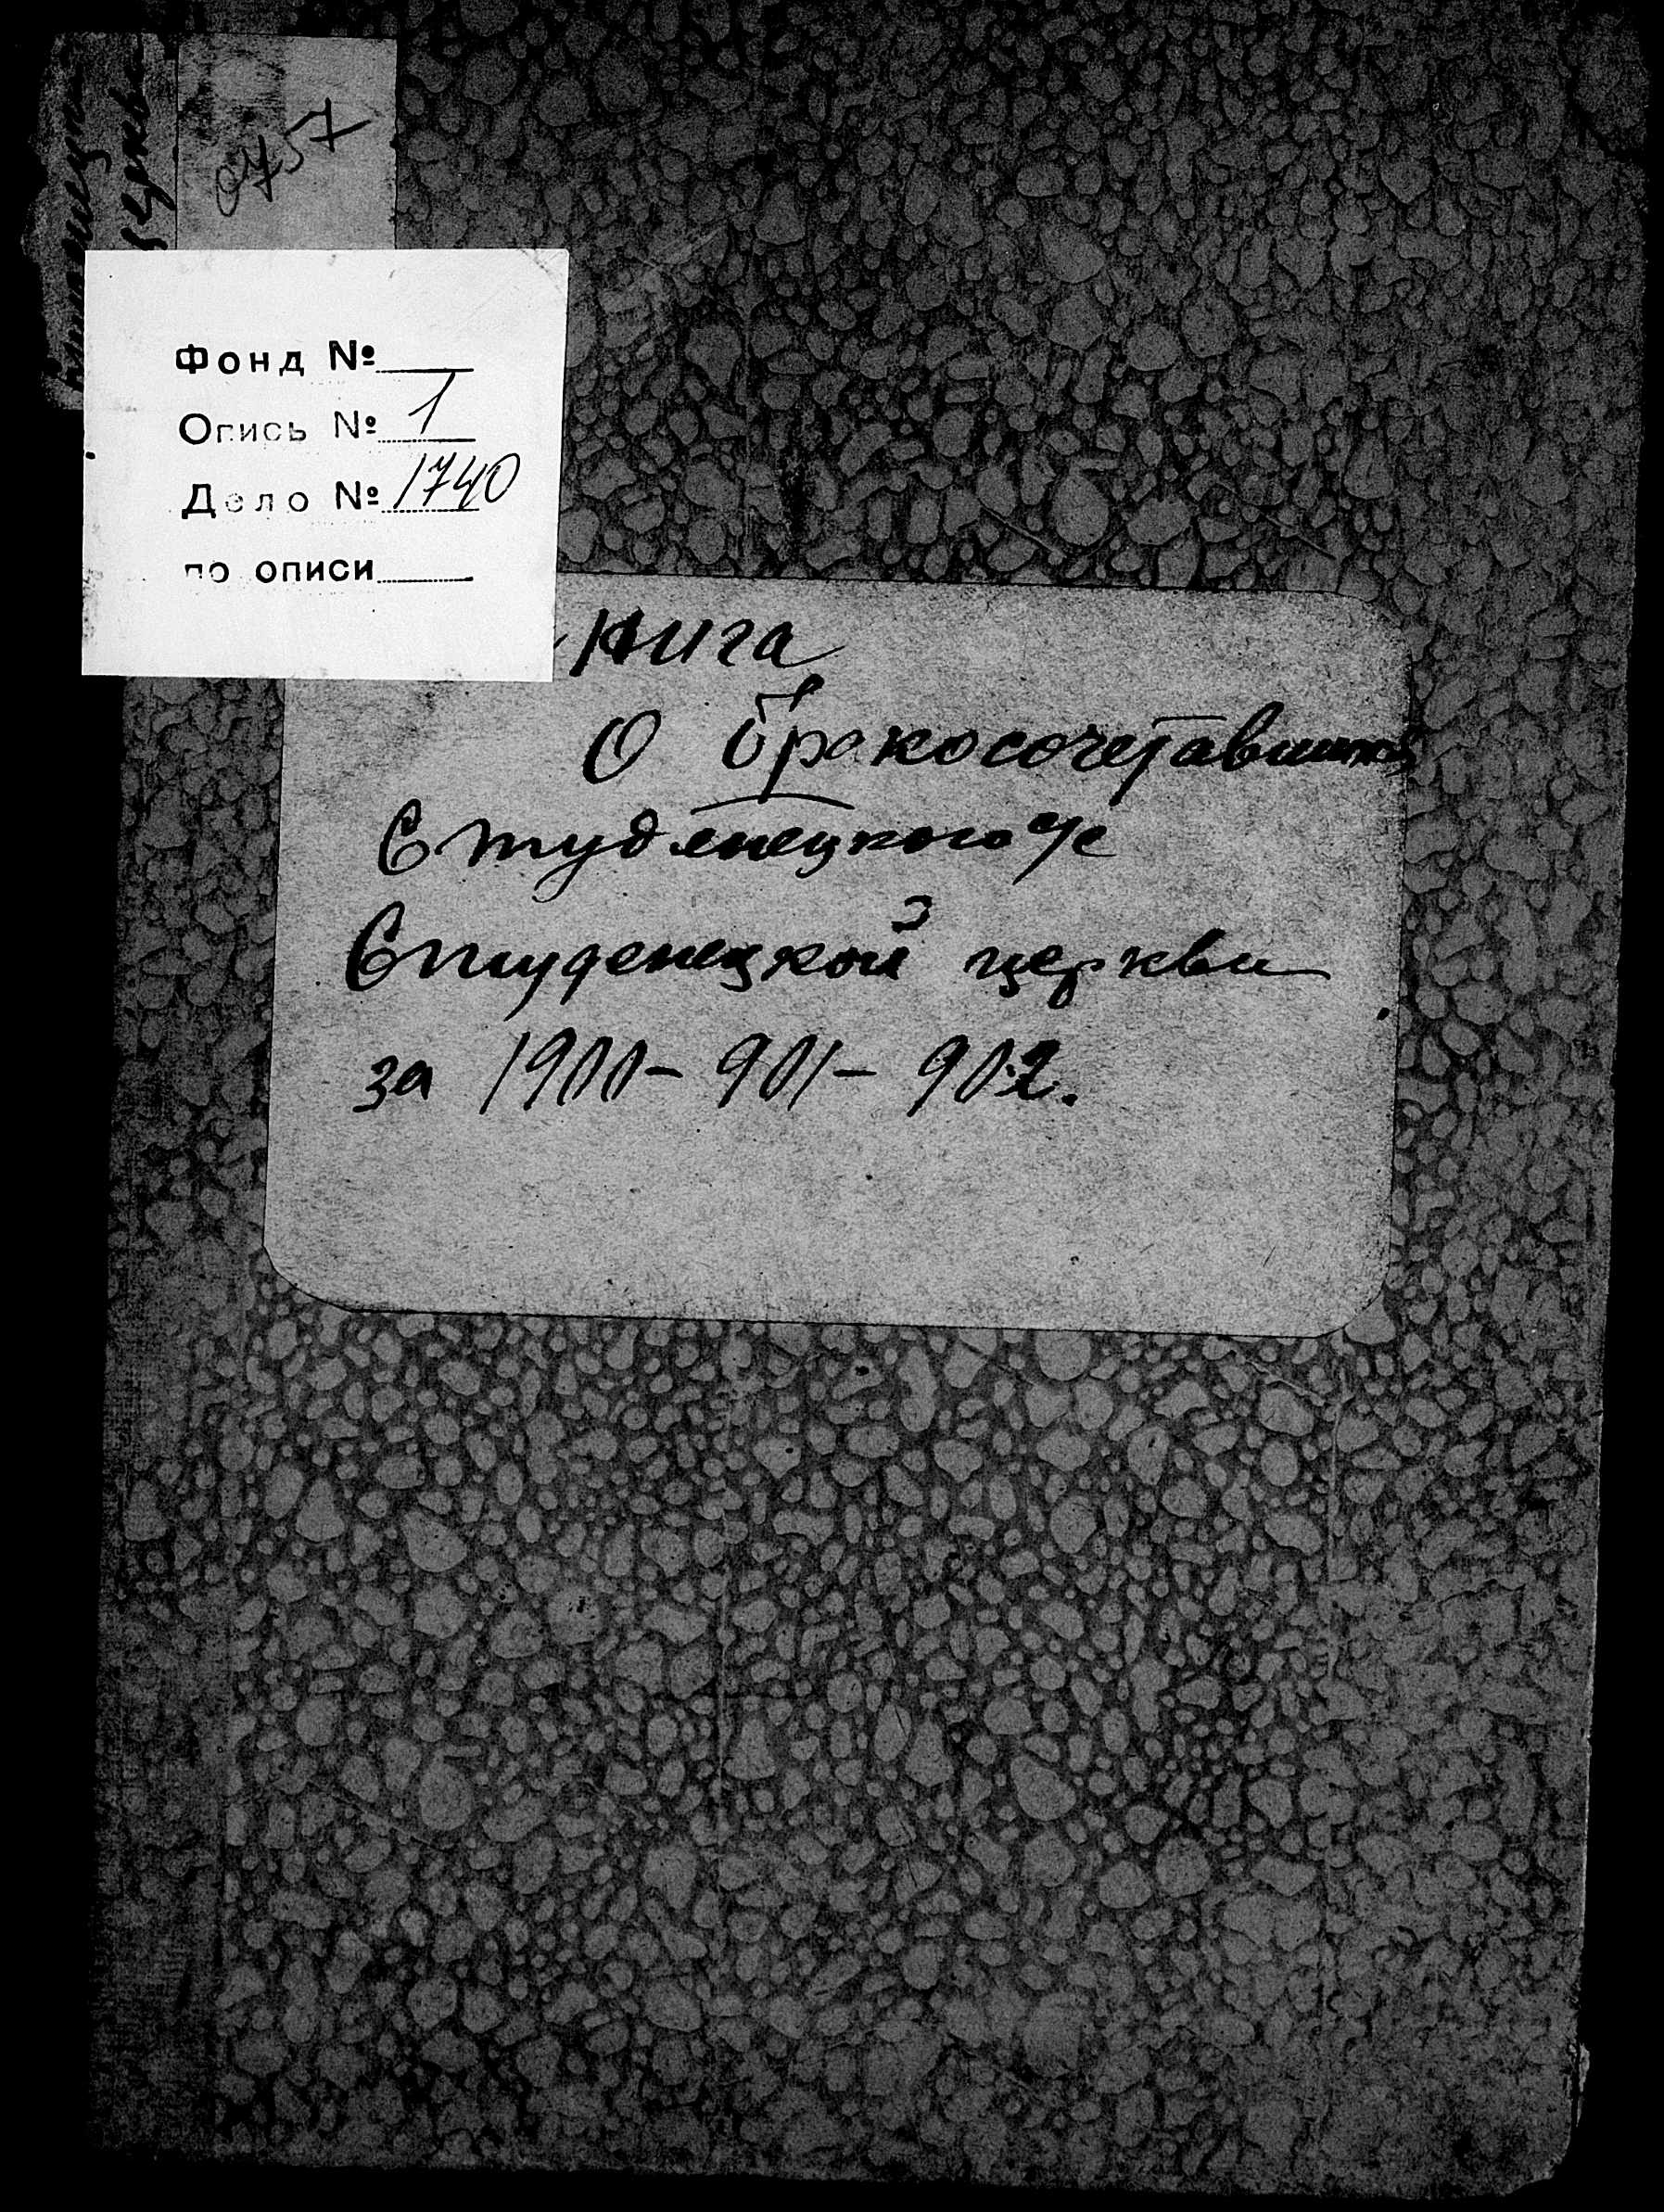 757
Фонд №
Опись № 1
Дело № 1740
по описи
Книга
О бракосочетавшихся
Студенецкого с/с
Студенецкой церкви
за 1900-901-902.